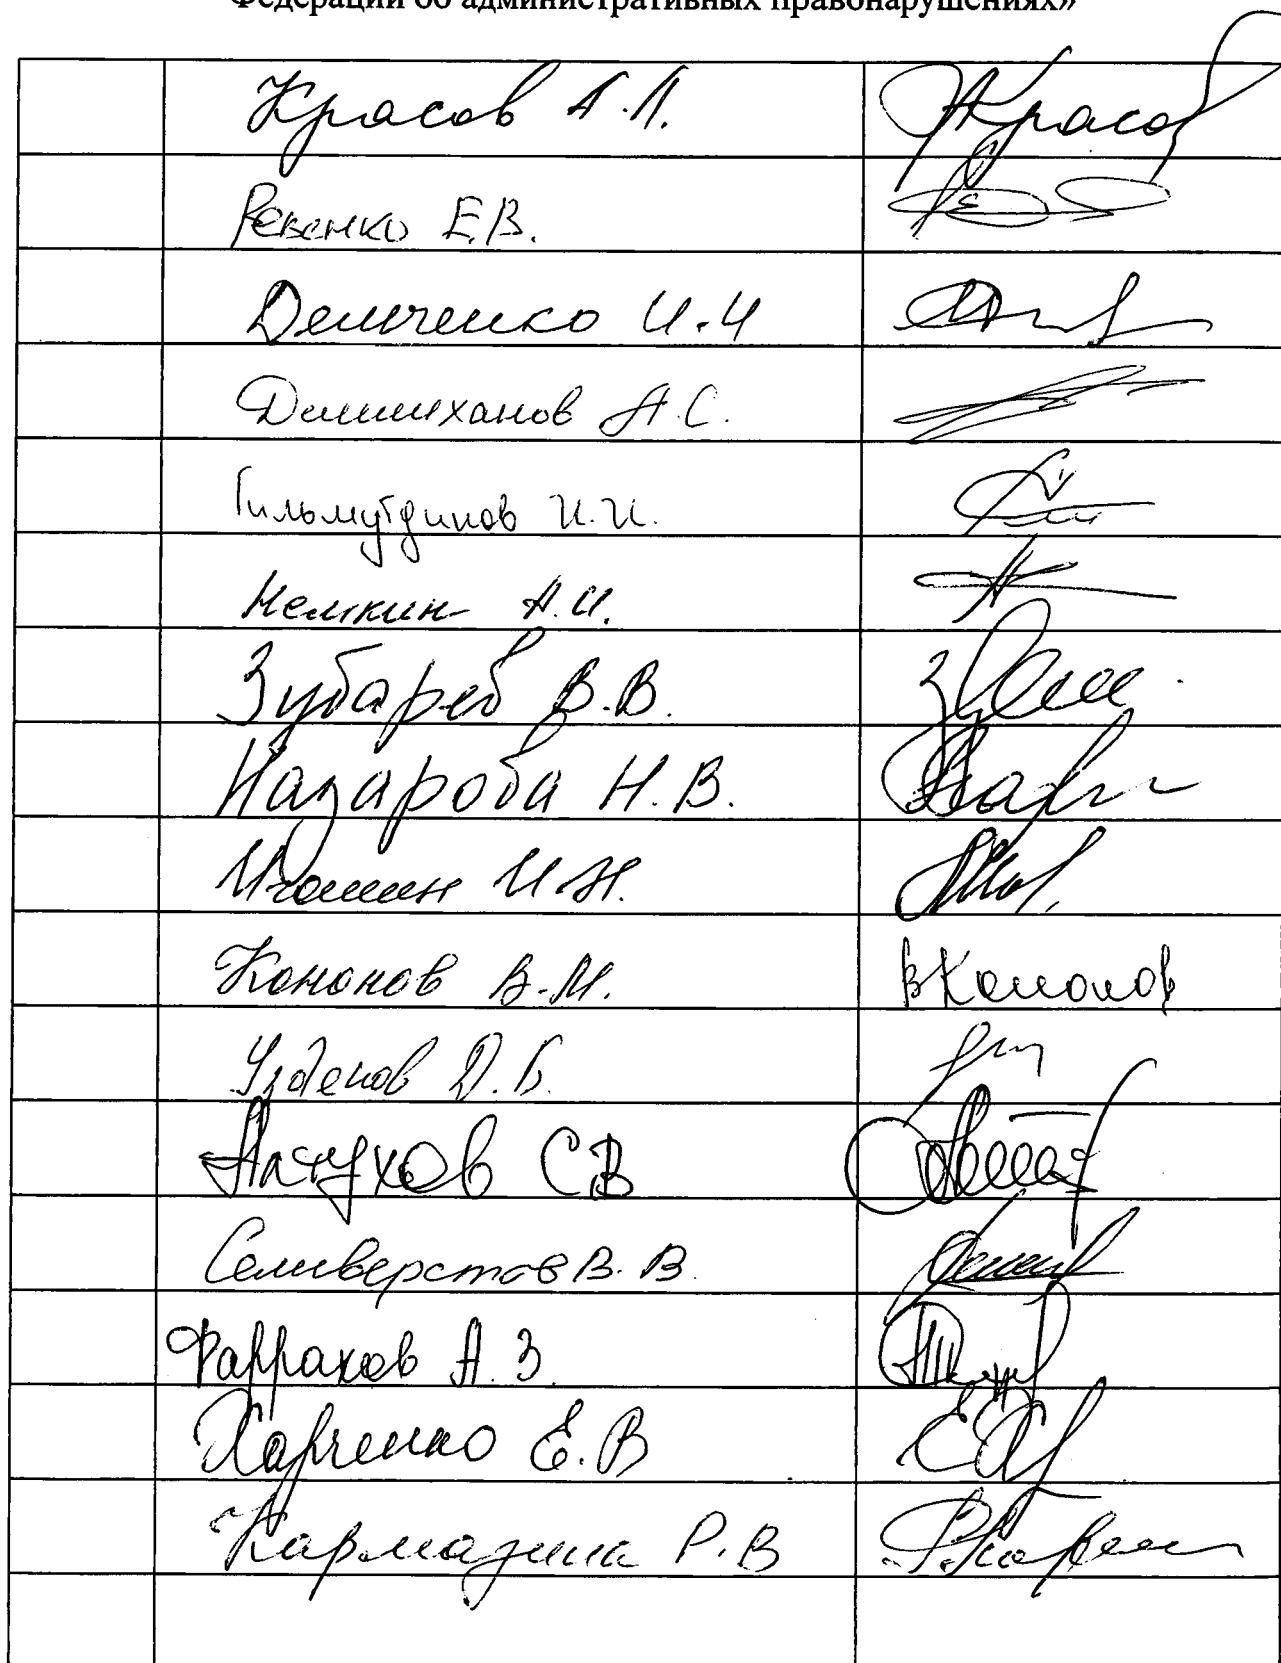 Федерации об административных правонарушениях»
Красов А.Л. Красов
Ревенко Е.В.
Демченко И.И
Делимханов А.С.
Гильмутдинов И.И.
Немкин А.И.
Зубарев В.В.
Назарова Н.В.
Игошин И.Н.
Кононов В.М. ВКононов
Узденов Д.Б.
Алтухов СВ
Селиверстов В.В.
Фаррахов А.З.
Харченко Е.В
Кармазина Р.В